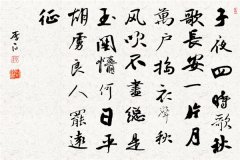 子夜四時歌秋
歌長安一片月
萬戶搗衣聲秋
風吹不盡總是
玉關情何日平
胡虜良人罷遠
征